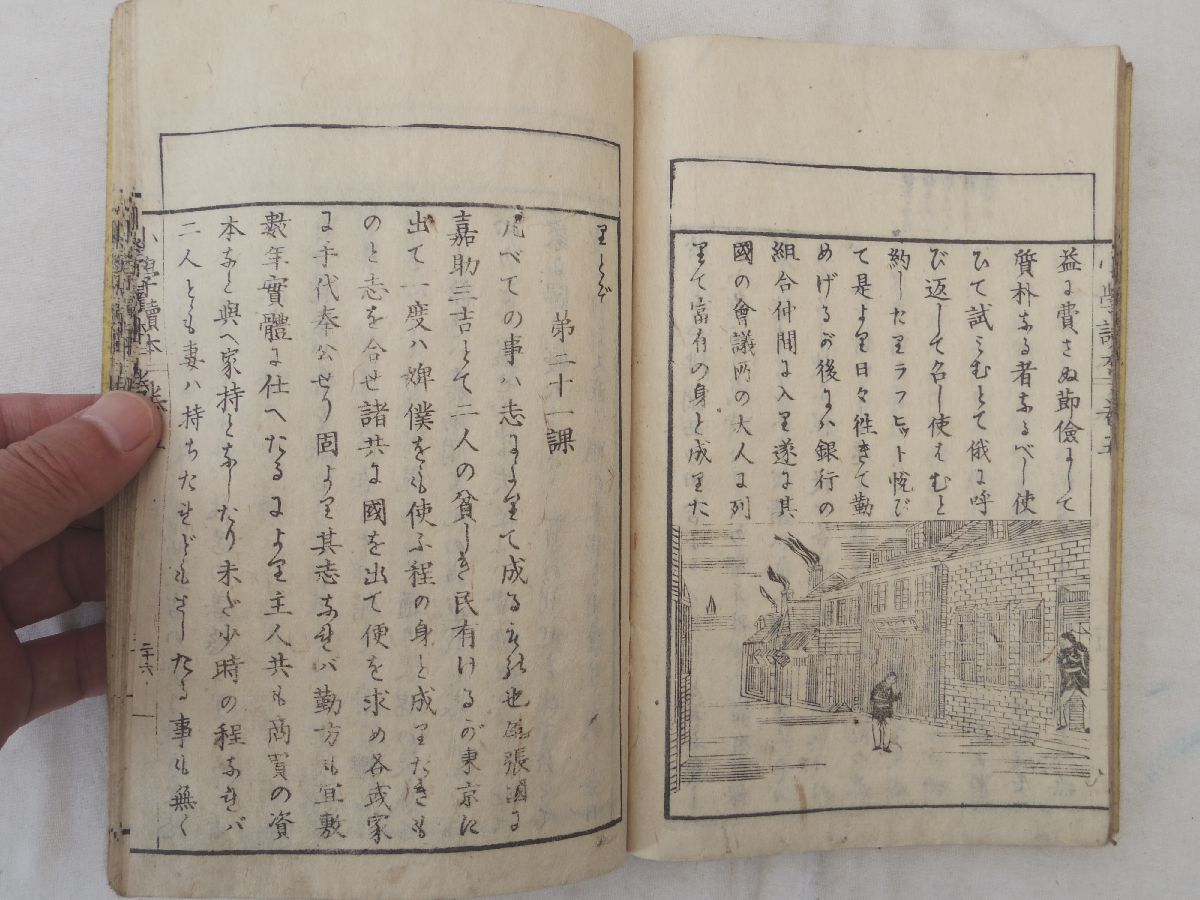 益に費さぬ節儉にして
質朴なる者なるべし使
ひて試みむとて俄に呼
び返して名し使はむと
約したりラフヒット悦び
て是より日々往きて勤
めけるが後には銀行の
組合仲間に入り遂に其
國の會議所の大人に列
りて富有の身と成りた
小學讀本 卷五
りとぞ
第二十一課
凡べての事ハ志によりて成るもの也尾張国に
嘉助三吉とて二人の貧しき民有けるが東京に
出て一度ハ婢僕をも使ふ程の身と成りたきも
のと志を合せ諸共に國を出て便を求め各或家
に手代奉公せり固より其志なれバ勤方も宜敷
數年實體に仕へたるにより主人共も商買の資
本など與へ家持となしたり未だ少時の程なれバ
二人とも妻ハ持ちたれどもさしたる事も無く
小學讀本
二十六